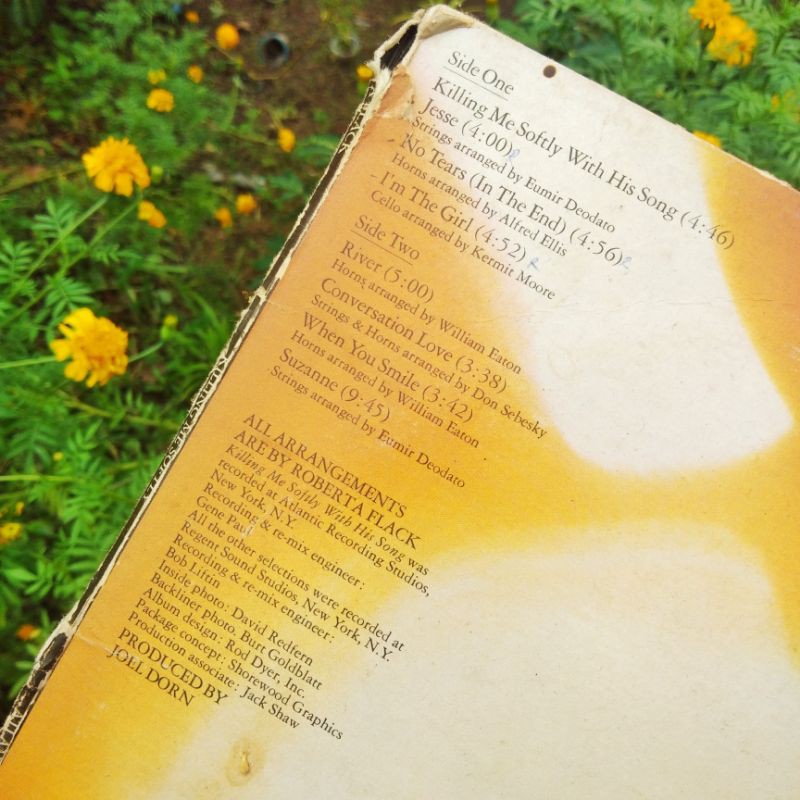 Side One
Killing Me Softly With His Song (4:46)
Jesse (4:00)
Strings arranged by Eumir Deodato
- No Tears (In The End) (4:56)
Horns arranged by Alfred Ellis
- I'm The Girl (4:52)
Cello arranged by Kermit Moore
Side Two
River (5:00)
Horns arranged by William Eaton
Conversation Love (3:38)
Strings & Horns arranged by Don Sebesky
When You Smile (3:42)
Horns arranged by William Eaton
Suzanne (9:45)
Strings arranged by Eumir Deodato
ALL ARRANGEMENTS
ARE BY ROBERTA FLACK
Killing Me Softly With His Song was
recorded at Atlantic Recording Studios,
New York, N.Y.
Recording & re-mix engineer:
Gene Paul
All the other selections were recorded at
Regent Sound Studios, New York, N.Y.
Recording & re-mix engineer:
Bob Liftin
Inside photo: David Redfern
Backliner photo, Burt Goldblatt
Album design: Rod Dyer, Inc.
Package concept: Shorewood Graphics
Production associate: Jack Shaw
PRODUCED BY
JOEL DORN
KILLING ME SOFTLY